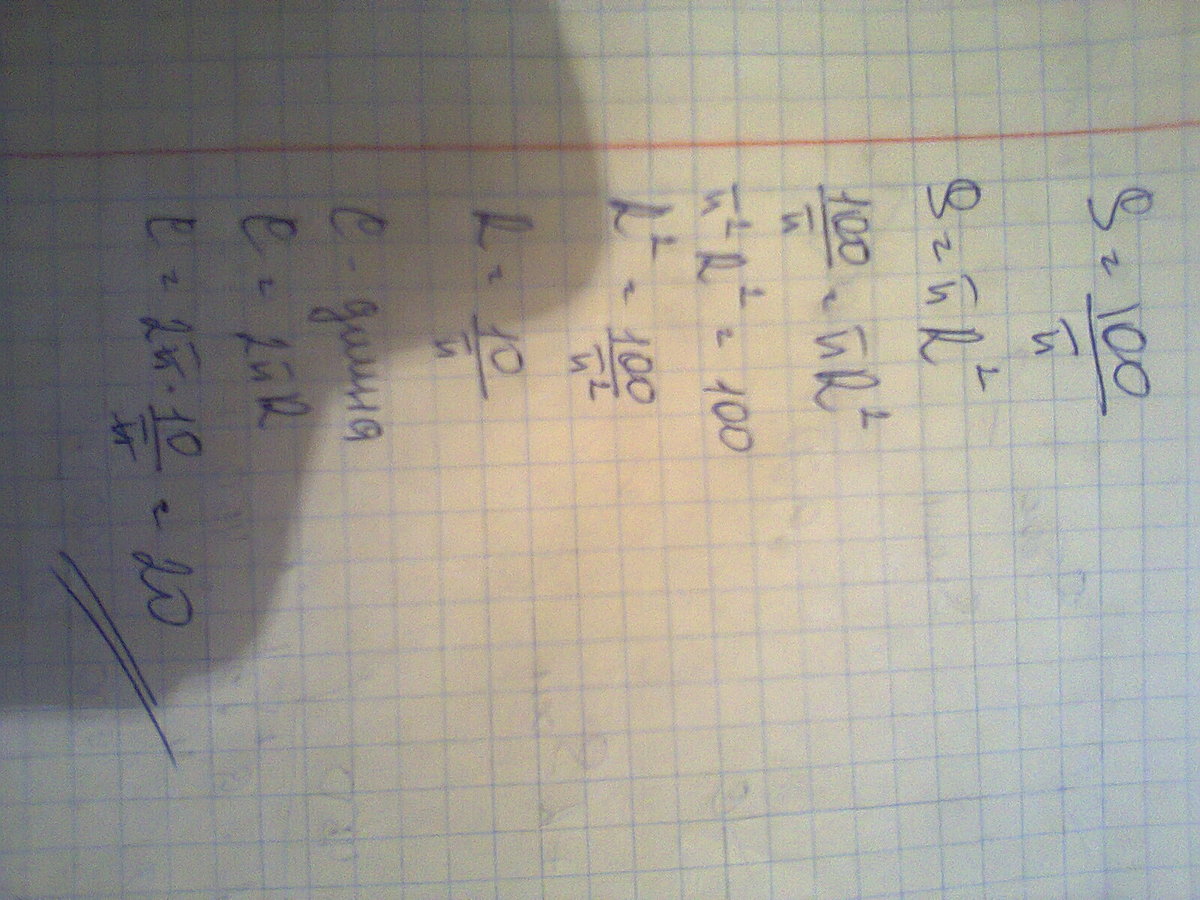 S = 100/π
S = πR²
100/π = πR²
π²R² = 100
R² = 100/π²
R = 10/π
C - длина
C = 2πR
C = 2π · 10/π = 20